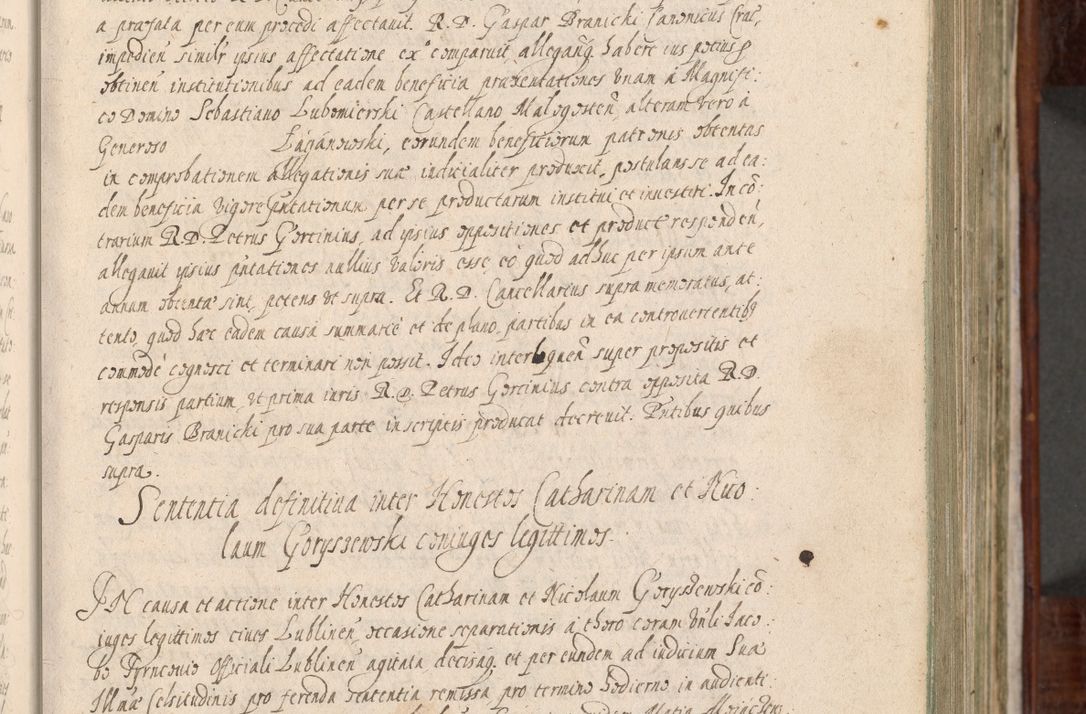 a præfata per eum procedi affectauit. R. D. Gaspar Branicki Canonicus Crac,
impedien similr ipsius affectatione exº comparuit, allegang habere ius potius
obtinen institutionibus ad eadem beneficia præsentationes vnam à Magnifi:
co Domino Sebastiano Lubomierski Castellano Malogosten, alteram vero à
Generoso Łaganowski, eorundem beneficiorum patronis obtentas
in comprobationem allegationis suæ iudicialiter produxit, postulans se ad ea:
dem beneficia vigore pntationum per se productarum institui et inuestiri. In cō:
trarium R. D. Petrus Gorcinius, ad ipsius oppositiones et product responden,
allegauit ipsius pntationes nullius valoris esse, eo quod adhuc per ipsum ante
annum obtentæ sint, petens vt supra. Et R. D. Cancellarius supra memoratus, at:
tento, quod hæc eadem causa summarie et de plano, partibus in ea controuertentib9
commodè cognosci et terminari non possit. Ideo interloquen super propositis et
responsis partium, vt prima iuris R. D. Petrus Gorcinius contra opposita R. D.
Gasparis Branicki pro sua parte in scriptis producat decreuit. Pntibus quibus
supra.
Sententia definitiua inter Honestos Catharinam et Nico:
laum Goryszewski coniuges legittimos.
IN causa et actione inter Honestos Catharinam et Nicolaum Goryszewski cō:
iuges legittimos ciues Lublinen, occasione separationis à thoro coram Vnli Iaco:
bo Pyrneovio Officiali Lublinen agitata decisaq. et per eundem ad iudicium Suæ
Illmæ Celsitudinis pro ferenda sententia remissa pro termino hodierno in audienti: